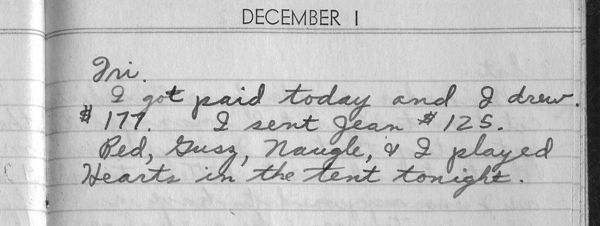 DECEMBER 1
Fri.
I got paid today and I drew.
$177. I sent Jean $125.
Red, Gusz, Naugle, & I played
Hearts in the tent tonight.